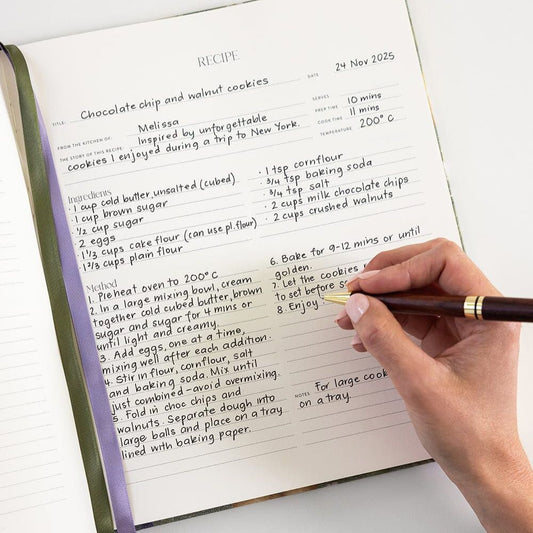 RECIPE
DATE 24 Nov 2025
TITLE: Chocolate chip and walnut cookies
SERVES
FROM THE KITCHEN OF: Melissa
PREP TIME 10 mins
THE STORY OF THIS RECIPE: Inspired by unforgettable
COOK TIME 11 mins
cookies I enjoyed during a trip to New York.
TEMPERATURE 200°C
Ingredients
· 1 cup cold butter, unsalted (cubed)
· 1 cup brown sugar
· 1/2 cup sugar
· 2 eggs
· 1 1/3 cups cake flour (can use pl.flour)
· 1 2/3 cups plain flour
· 1 tsp cornflour
· 3/4 tsp baking soda
· 3/4 tsp salt
· 2 cups milk chocolate chips
· 2 cups crushed walnuts
Method
1. Preheat oven to 200°C
2. In a large mixing bowl, cream
together cold cubed butter, brown
sugar and sugar for 4 mins or
until light and creamy.
3. Add eggs, one at a time,
mixing well after each addition.
4. Stir in flour, cornflour, salt
and baking soda. Mix until
just combined - avoid overmixing.
5. Fold in choc chips and
walnuts. Separate dough into
large balls and place on a tray
lined with baking paper.
6. Bake for 9-12 mins or until
golden.
7. Let the cookies
to set before
8. Enjoy
NOTES For large
on a tray.